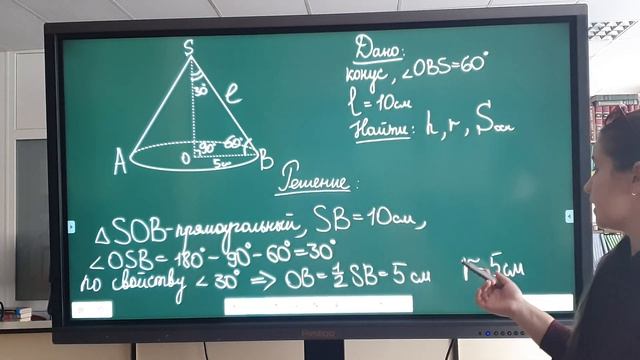 S
30°
l
A
O
90°
60°
B
5см
Дано:
конус, ∠OBS=60°
l=10см
Найти: h, r, Sосн
Решение:
△SOB-прямоугольный, SB=10см,
∠OSB=180°-90°-60°=30°
по свойству ∠30° => OB=½SB=5см
r=5см